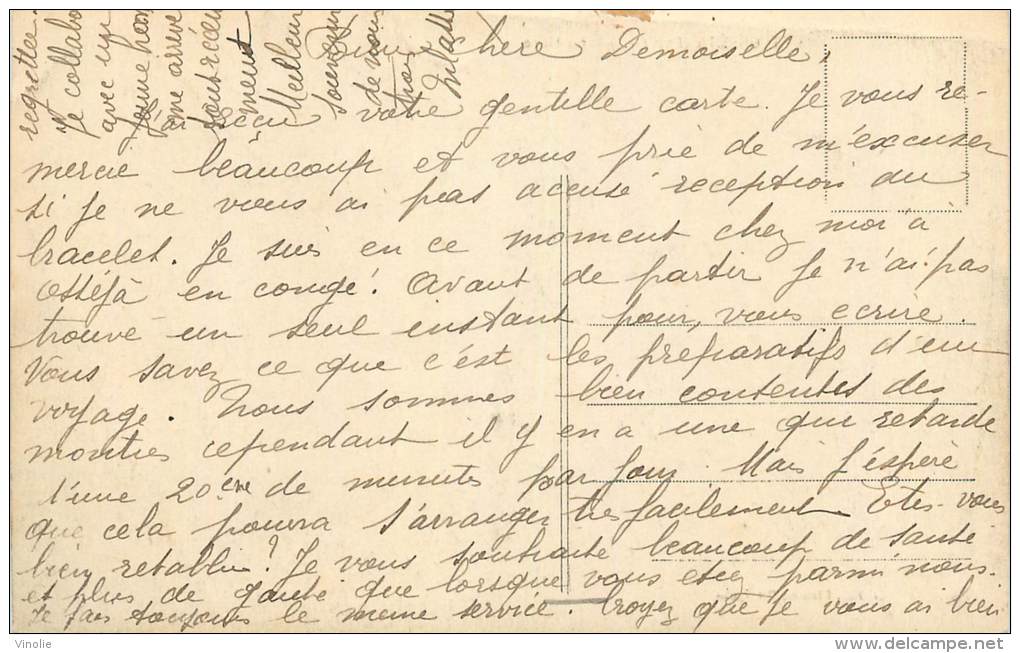 chère Demoiselle,
J'ai recu votre gentille carte. Je vous re-
mercie beaucoup et vous prie de m'excuser
si je ne vous ai pas accusé reception du
bracelet. Je suis en ce moment chez moi à
Osséja en congé. Avant de partir je n'ai pas
trouvé un seul instant pour vous ecrire.
Vous savez ce que c'est les préparatifs d'un
voyage. Nous sommes bien contentes des
montres cependant il y en a une qui retarde
d'une 20.ene de minutes par jour. Mais j'éspère
que cela pourra s'arranger tres facilement. Etes-vous
bien retablie? Je vous souhaite beaucoup de santé
et plus de gaité que lorsque vous etiez parmi nous.
Je fais toujours le meme service. Croyez que je vous ai bien
regrettée.
Je collabo
avec un
jeune hom
me arrivé
tout récem
ment
Meilleur
souvenir
de nous
trois
Vinolie
delcampe.net